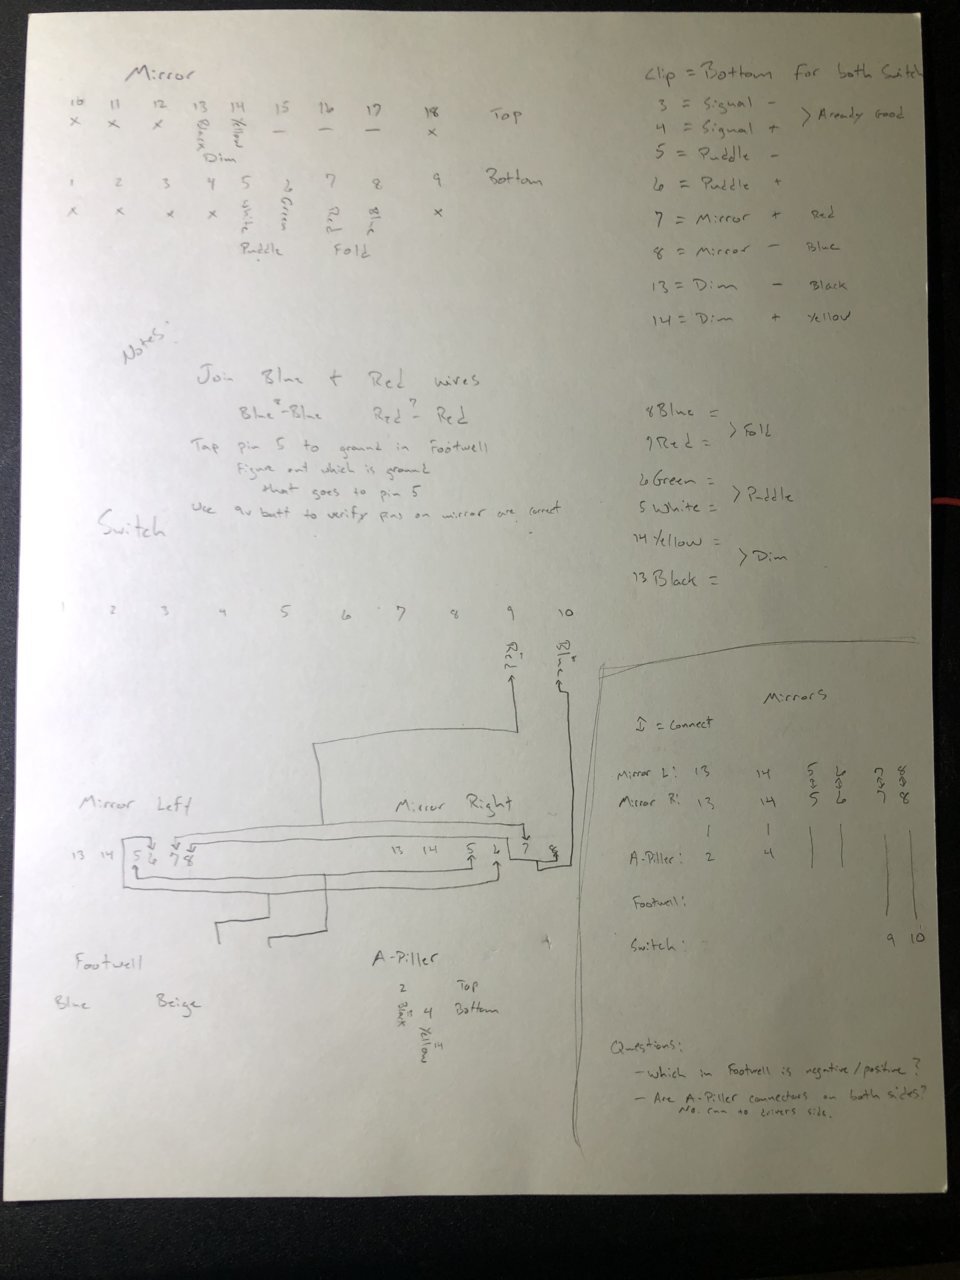 Mirror
10 11 12 13 14 15 16 17 18 Top
x x x Black Yellow - - - x
Dim
1 2 3 4 5 6 7 8 9 Bottom
x x x x White Green Red Blue x
Puddle Fold
Clip = Bottom for both Switch
3 = Signal -
4 = Signal + > Aready Good
5 = Puddle -
6 = Puddle +
7 = Mirror + Red
8 = Mirror - Blue
13 = Dim - Black
14 = Dim + Yellow
Notes:
Join Blue + Red wires
Blue 8 - Blue Red 7 - Red
Tap pin 5 to ground in Footwell
Figure out which is ground
that goes to pin 5
Use 9v batt to verify pins on mirror are correct
8 Blue =
7 Red = > Fold
6 Green =
5 White = > Puddle
14 Yellow =
13 Black = > Dim
Switch
1 2 3 4 5 6 7 8 9 10
Red 7 Blue 8
Mirror Left Mirror Right
13 14 5 6 7 8 13 14 5 6 7 8
Footwell
Blue Beige
A-Piller
2 Top
Black 13 4 Bottom
Yellow 14
Mirrors
↕ = Connect
Mirror L: 13 14 5 6 7 8
Mirror R: 13 14 5 6 7 8
A-Piller: 2 4
Footwell:
Switch: 9 10
Questions:
- Which in Footwell is negative/positive?
- Are A-Piller connectors on both sides?
No. run to drivers side.